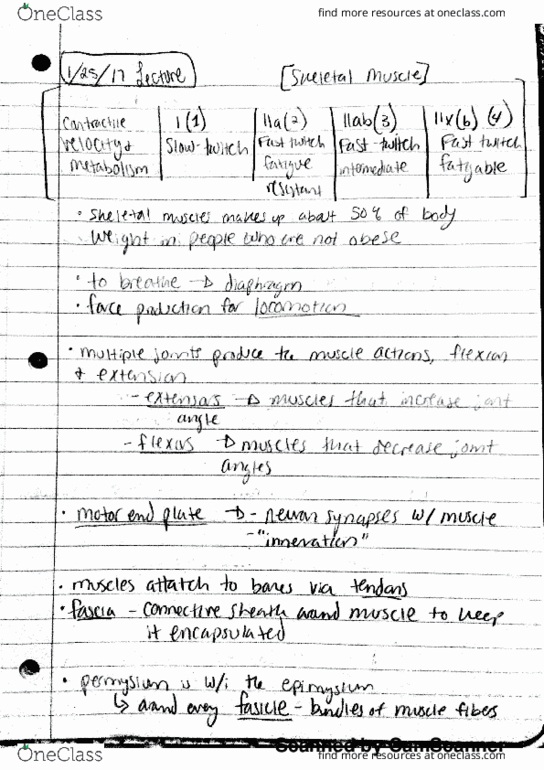 OneClass find more resources at oneclass.com
1/25/17 Lecture [Skeletal Muscle]
contractile velocity & metabolism
I (1) Slow-twitch
IIa (2) Fast twitch fatigue resistant
IIab (3) Fast-twitch intermediate
IIx(b) (4) Fast twitch fatgable
• Skeletal muscles makes up abait 50% of body
weight in people who are not obese
• to breathe → diaphragm
• force production for locomotion
• multiple joints produce the muscle actions, flexion
& extension
- extensors → muscles that increase joint
angle
- flexors → muscles that decrease joint
angles
• motor end plate → - neuron synapses w/ muscle
- "innervation"
• muscles attatch to bones via tendons
• fascia - connective sheath around muscle to keep
it encapsulated
• permysium is w/i the epimysium
↳ around every fasicle - bundles of muscle fibers
Scanned by CamScanner
OneClass find more resources at oneclass.com